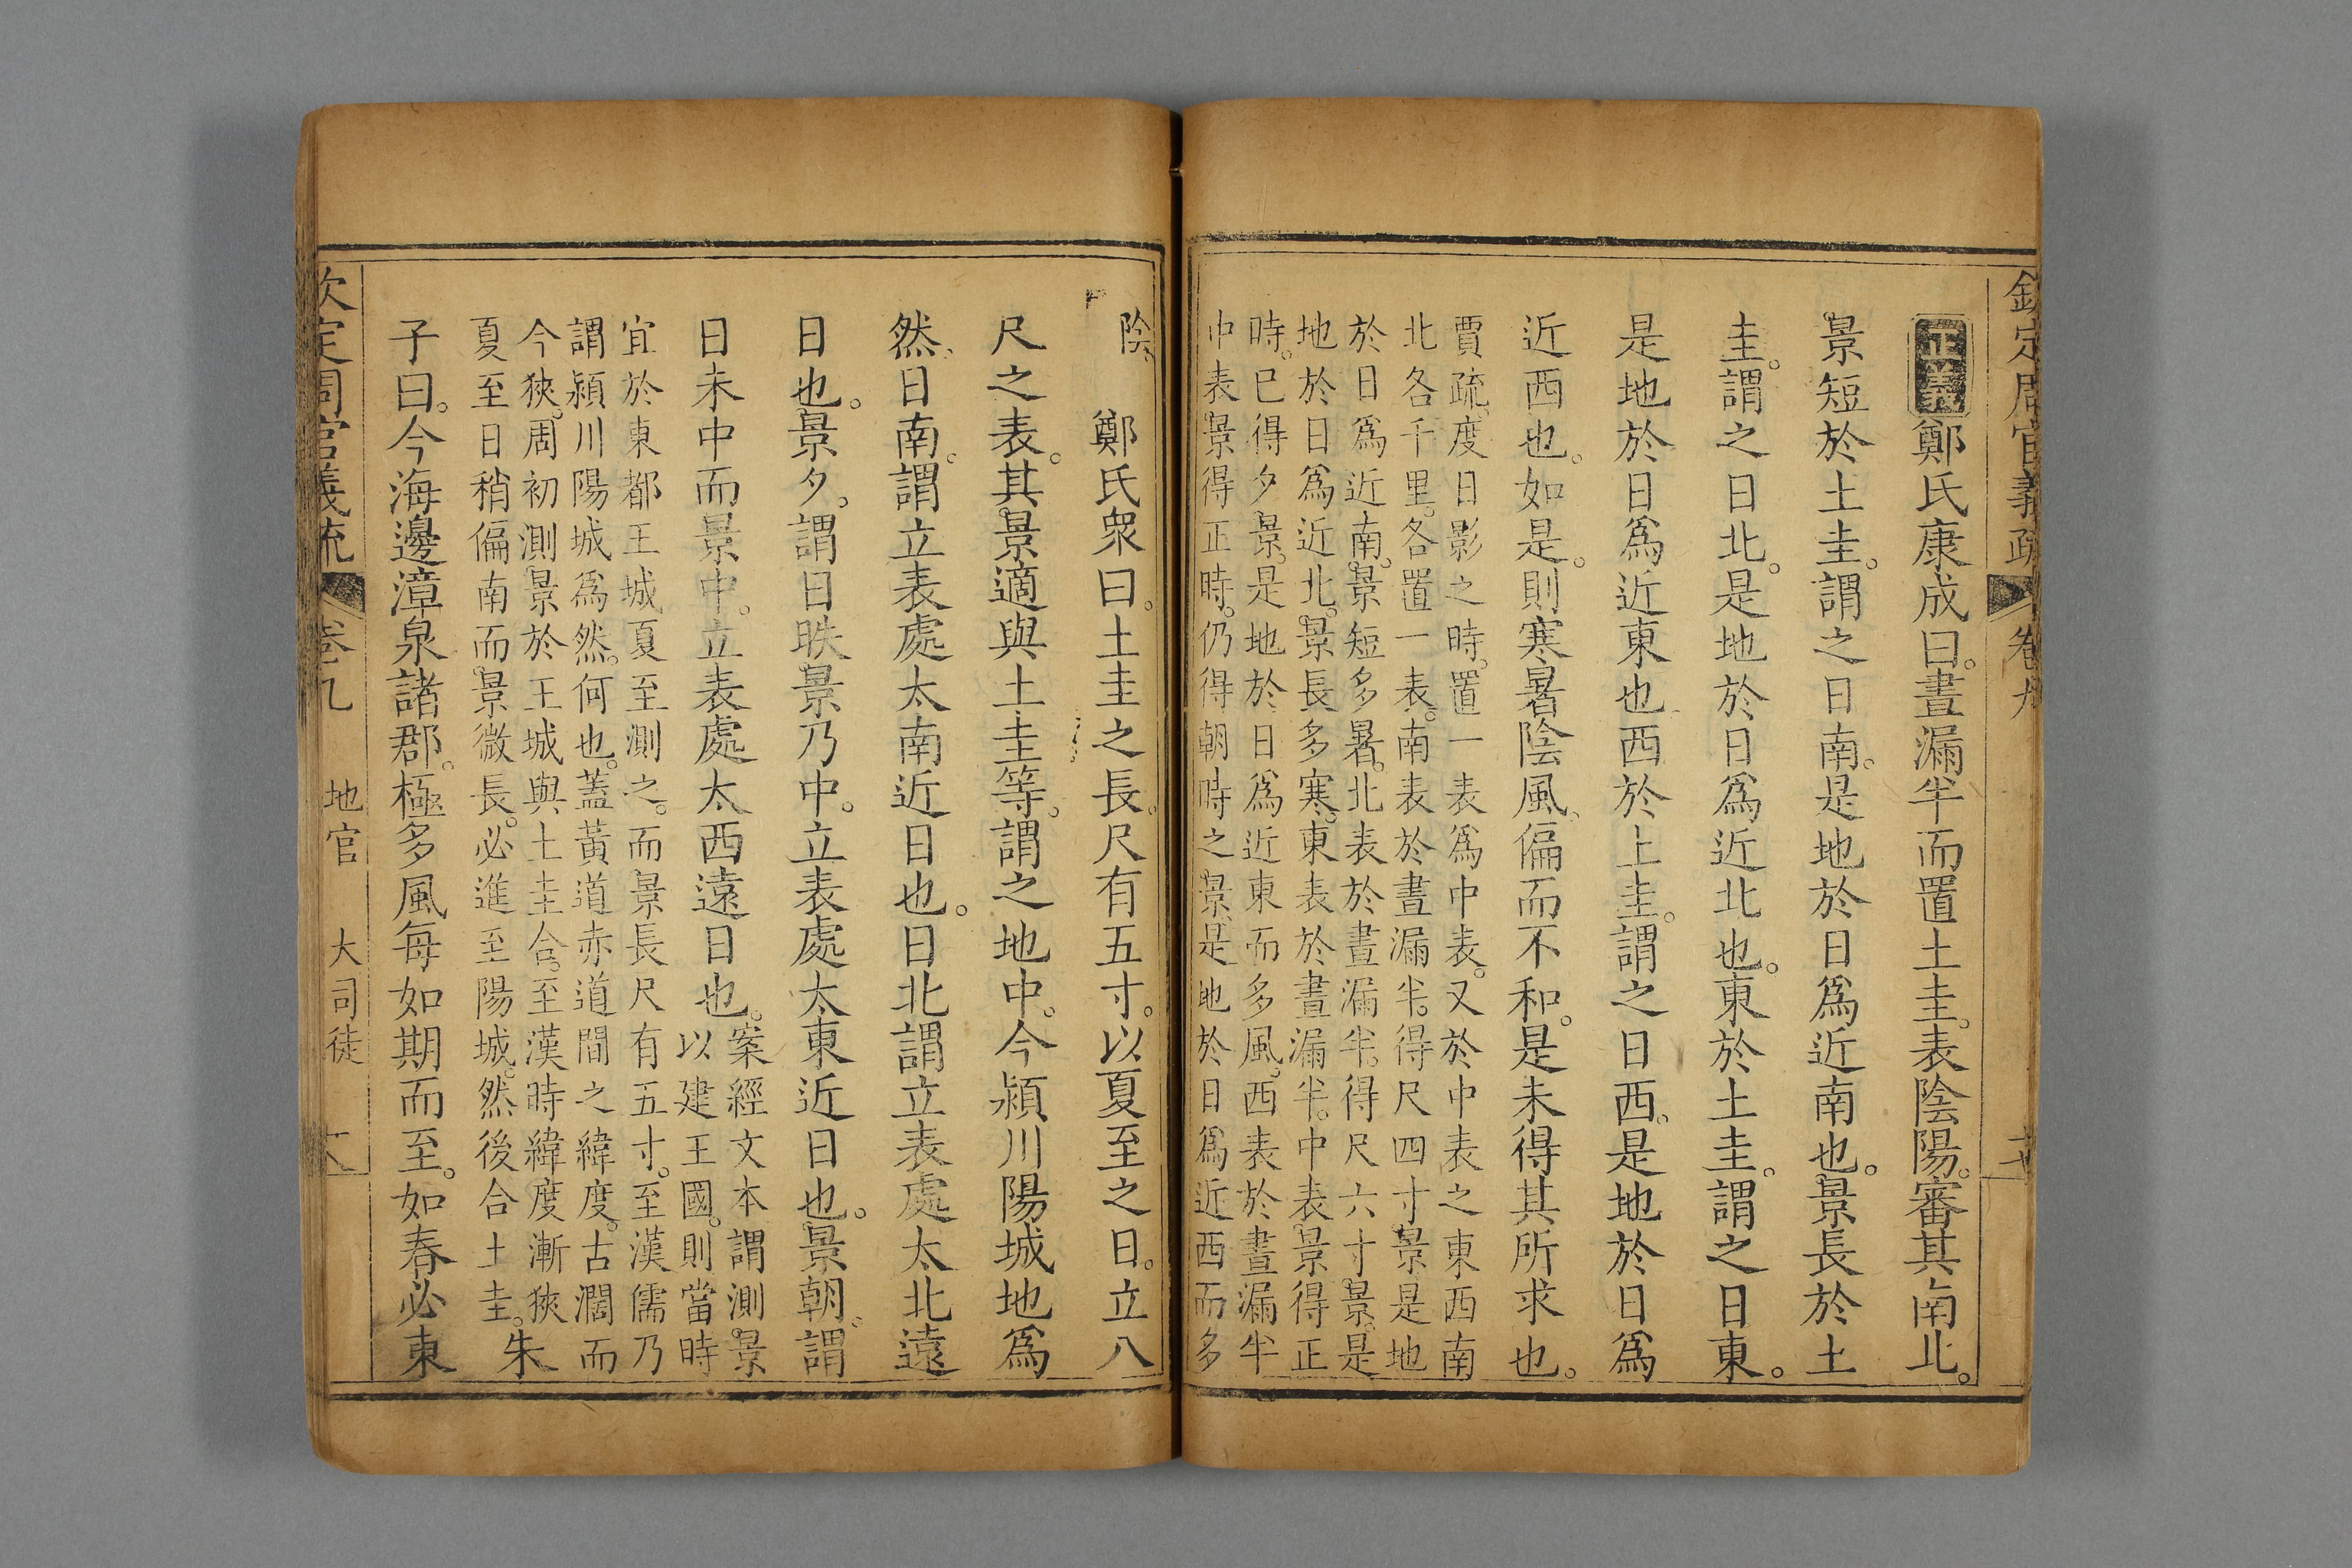 欽定周官義疏 卷九
正義鄭氏康成曰。晝漏半而置土圭。表陰陽。審其南北。
景短於土圭。謂之日南。是地於日爲近南也。景長於土
圭。謂之日北。是地於日爲近北也。東於土圭。謂之日東。
是地於日爲近東也西於土圭。謂之日西。是地於日爲
近西也。如是。則寒暑陰風、偏而不和。是未得其所求也。
賈疏。度日影之時。置一表爲中表。又於中表之東西南
北各千里。各置一表。南表於晝漏半。得尺四寸景是地
於日爲近南。景短多暑。北表於晝漏半。得尺六寸景。是
地於日爲近北。景長多寒。東表於晝漏半。中表景得正
時。已得夕景。是地於日爲近東而多風。西表於晝漏半
中表景得正時。仍得朝時之景是地於日爲近西而多
陰、 鄭氏衆曰。土圭之長。尺有五寸。以夏至之日。立八
尺之表。其景適與土圭等。謂之地中。今潁川陽城地爲
然、日南。謂立表處太南近日也。日北謂立表處太北遠
日也。景夕。謂日昳景乃中。立表處太東近日也。景朝。謂
日未中而景中。立表處太西遠日也。案經文本謂測景
以建王國。則當時
宜於東都王城夏至測之。而景長尺有五寸。至漢儒乃
謂潁川陽城爲然。何也。蓋黃道赤道間之緯度。古濶而
今狹。周初測景於王城與土圭合。至漢時緯度漸狹
夏至日稍偏南而景微長。必進至陽城。然後合土圭。朱
子曰。今海邊漳泉諸郡。極多風每如期而至。如春必東
欽定周官義疏 卷九 地官 大司徒